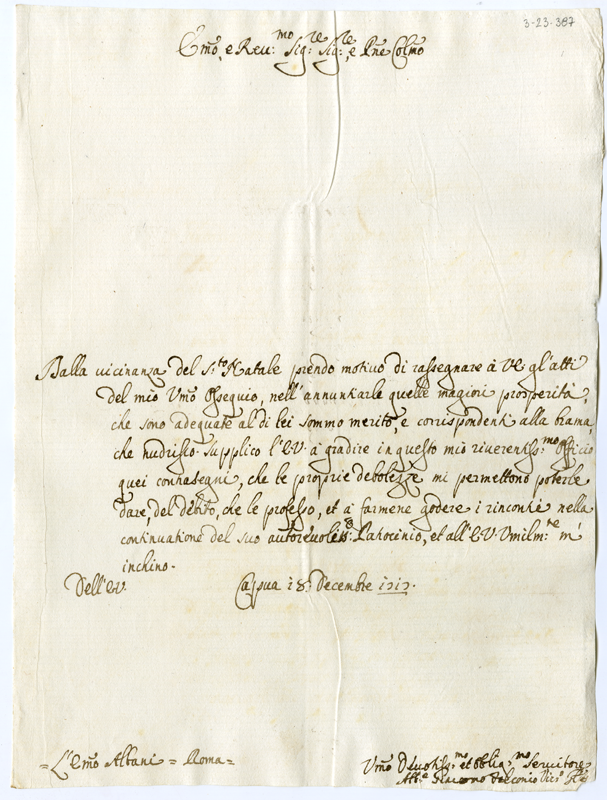 3-23-387
Em̃o, e Reu:mo Sig:re Sig:re, e Pñe Colm̃o
Dalla vicinanza del S.to Natale prendo motivo di rassegnare à VE gl'atti
del mio Vm̃o Ossequio, nell'annuntiarle quelle magiori prosperità,
che sono adequate al di lei sommo merito, e corrispondenti alla brama,
che nudrisco. Supplico l'E.V. à gradire in questo mio riverentiss:mo officio
quei contrasegni, che le proprie debolezze mi permettono poterle
dare, del debito, che le professo, et à farmene godere i rincontri nella
continuatione del suo autoreuoliss:o Patrocinio, et all'E.V. Vmilm:te m'
inchino.
Dell'E.V. Capua 18: Decembre 1717.
= L'Em̃o Albani = Roma =
Vm̃o Deuotiss:mo et Oblig:mo Servitore
Giacomo Falconio Vic:o